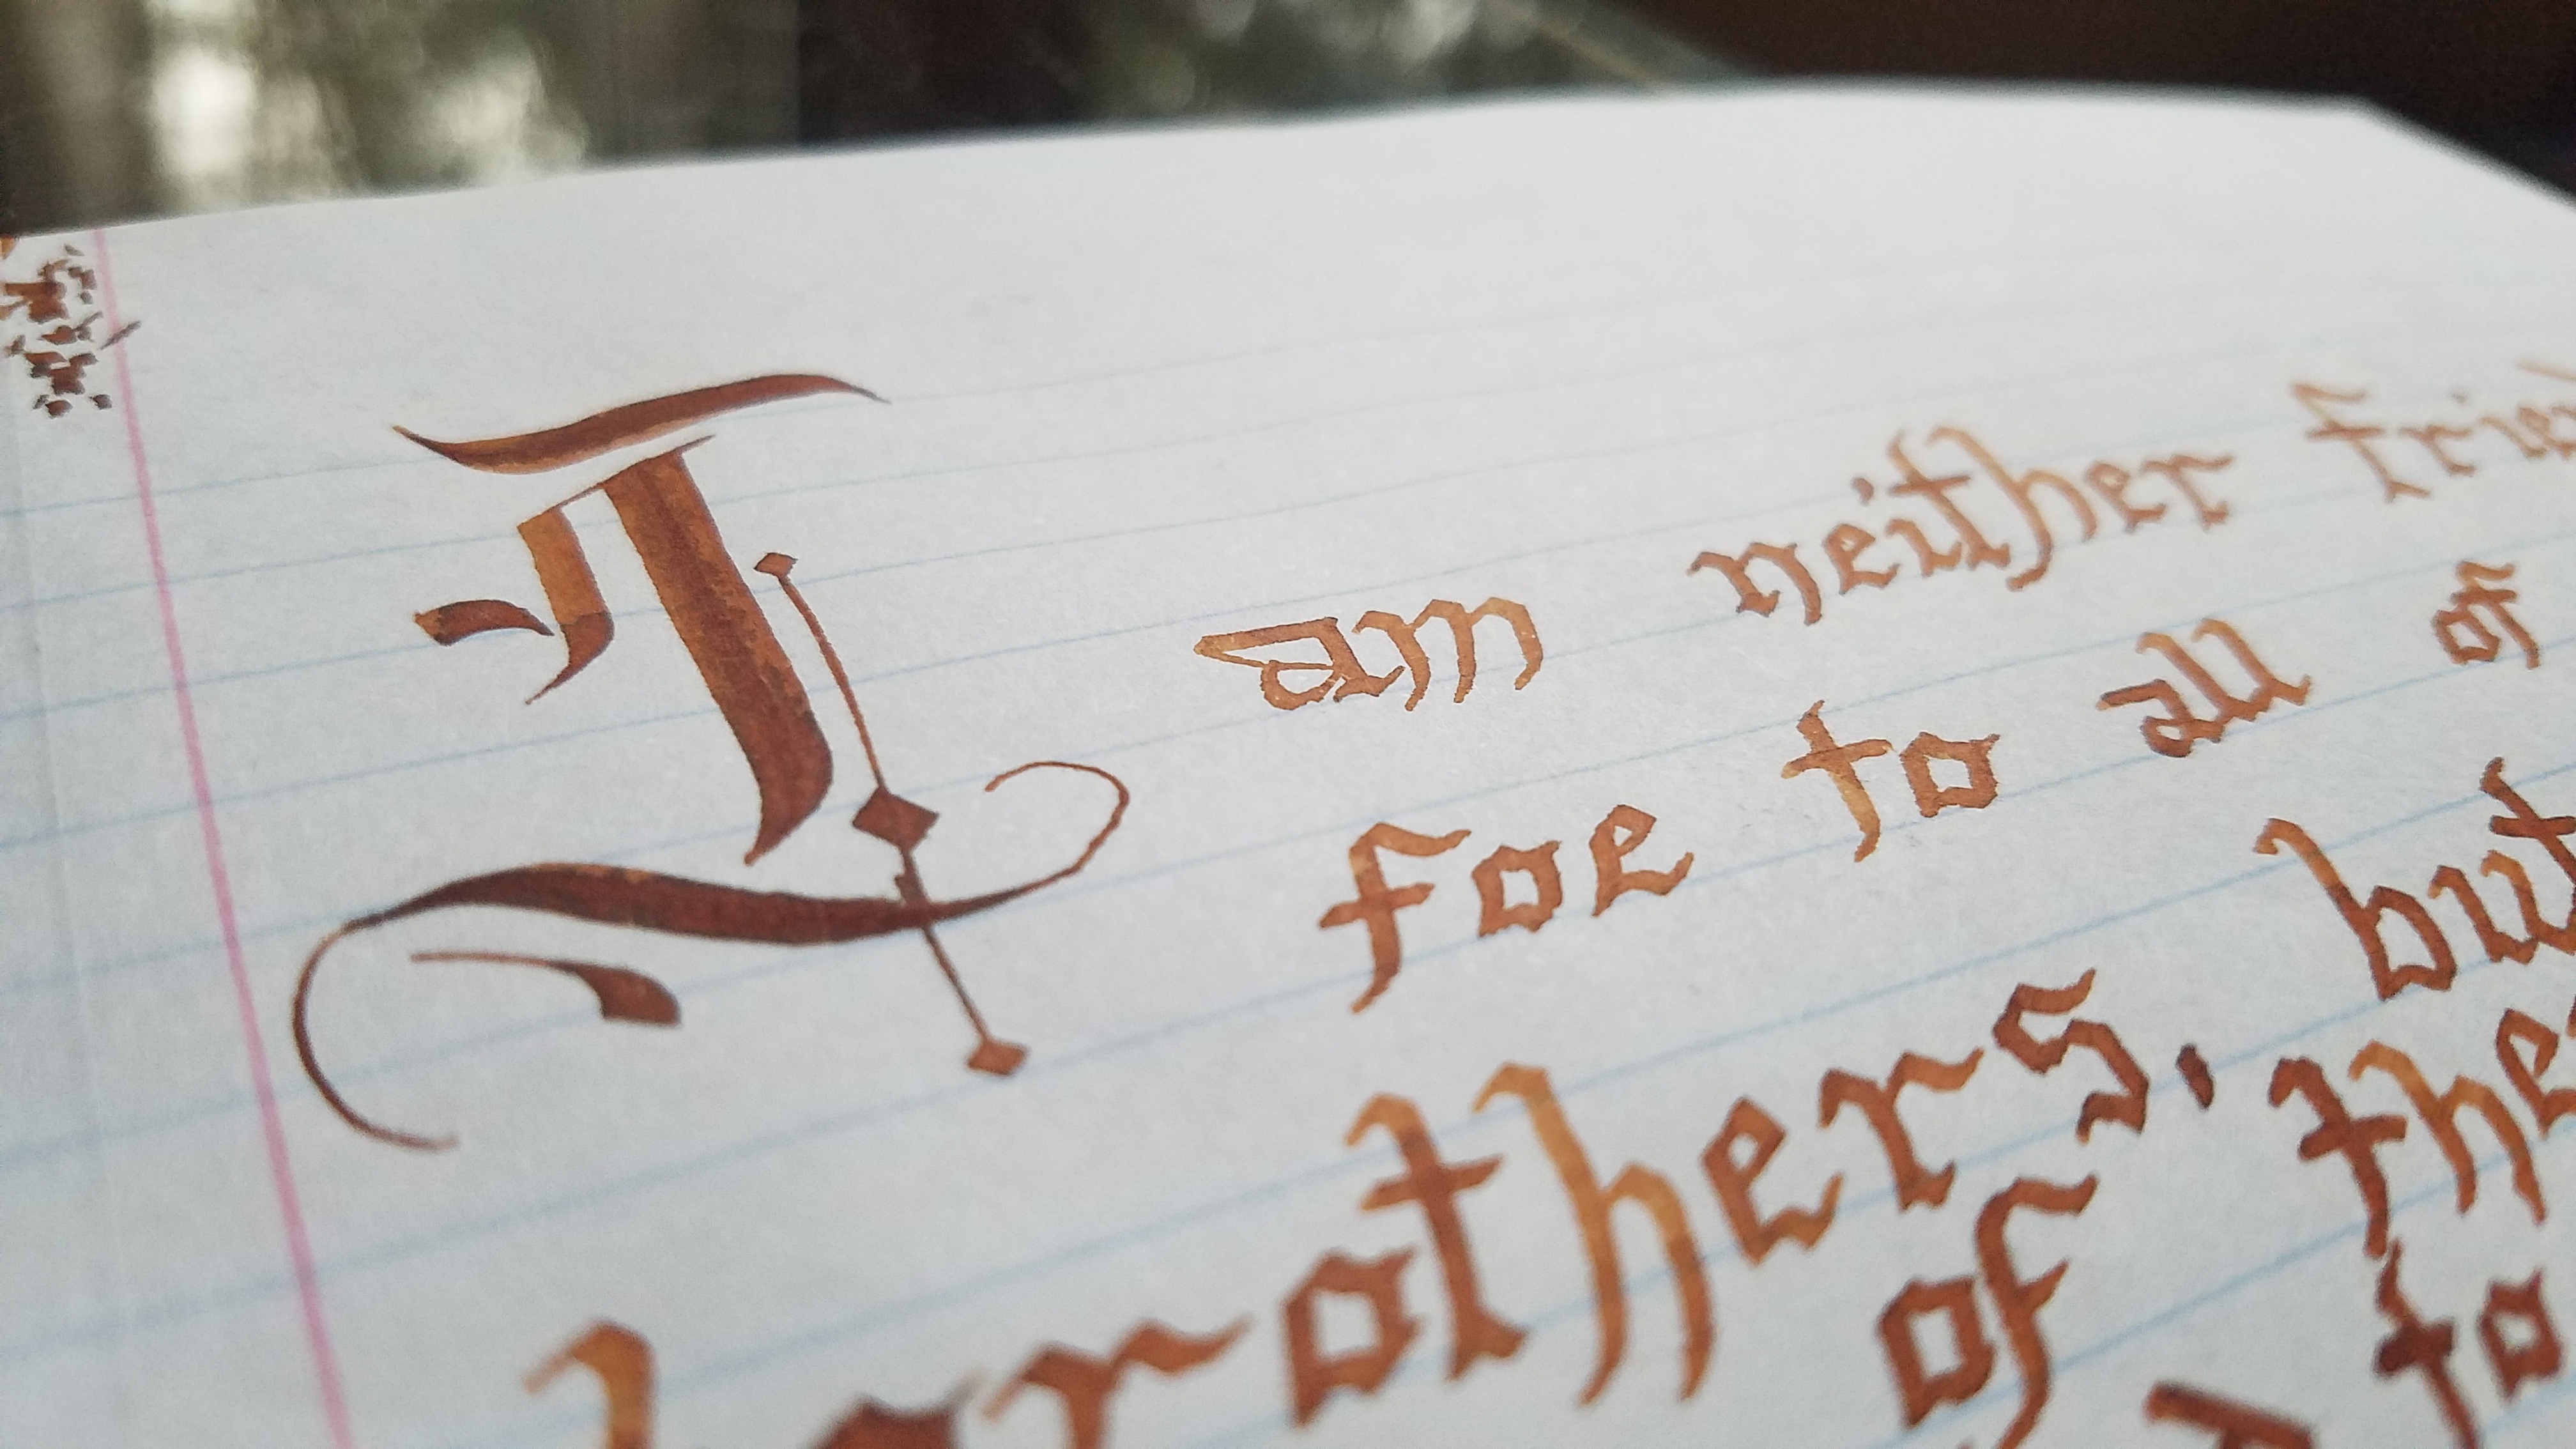 I am neither
foe to all or
brothers, but
of the
to